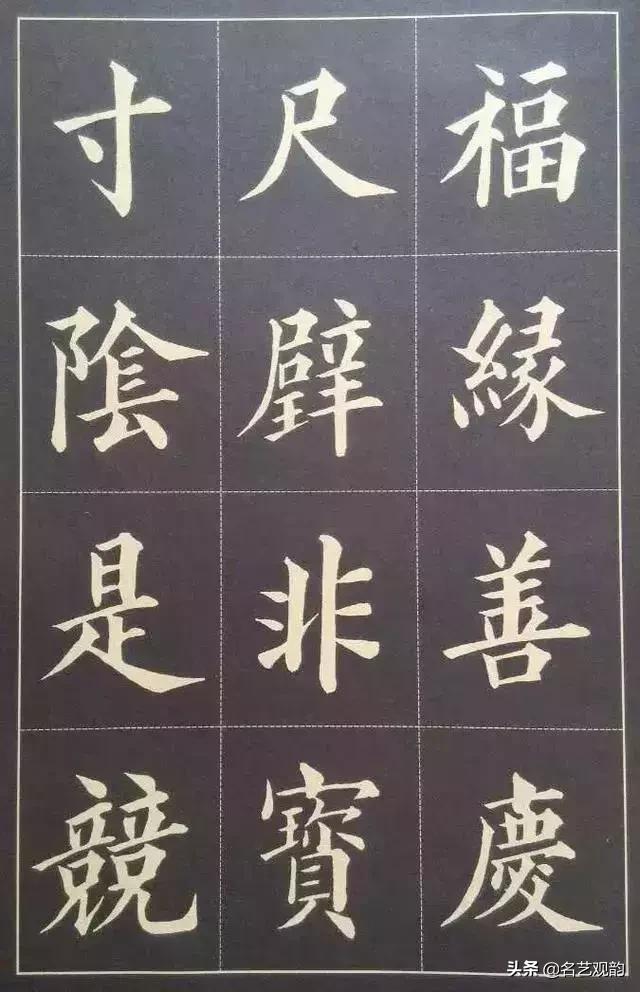 福緣善慶
尺璧非寶
寸陰是競
头条 @名艺观韵